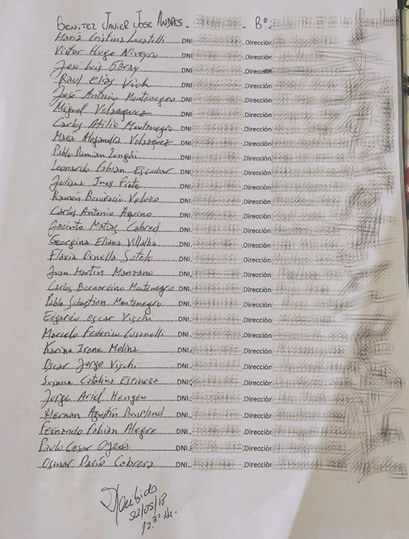 BENITEZ JAVIER JOSE ANDRES. - B°:
Maria Cristina DNI: Dirección
Victor Hugo Niveyro DNI: Dirección
Jose Luis Garay DNI: Dirección
Raul Elias Vich DNI: Dirección
Jose Antonio Montenegro DNI: Dirección
Miguel Velazquez DNI: Dirección
Carlos Atilio Montenegro DNI: Dirección
Maria Alejandra Velazquez DNI: Dirección
Pablo Damian DNI: Dirección
Leonardo Fabian Escobar DNI: Dirección
Juliana Ines Piate DNI: Dirección
Ramon Bonifacio Veloso DNI: Dirección
Carlos Antonio Aquino DNI: Dirección
Jacinto Matias Cabred DNI: Dirección
Georgina Eliana Villalba DNI: Dirección
Flavia Ornella Sotelo DNI: Dirección
Juan Martin Manzano DNI: Dirección
Carlos Bernardino Montenegro DNI: Dirección
Pablo Sebastian Montenegro DNI: Dirección
Edgardo Oscar Vischi DNI: Dirección
Marcelo Federico DNI: Dirección
Karina Irene Molina DNI: Dirección
Oscar Jorge Vischi DNI: Dirección
Susana Catalina Espinoza DNI: Dirección
Jorge Ariel DNI: Dirección
Hernan Agustin Bonpland DNI: Dirección
Fernando Fabian Alegre DNI: Dirección
Paulo Cesar DNI: Dirección
Osmar Dario Cabrera DNI: Dirección
Recibido
22/05/18